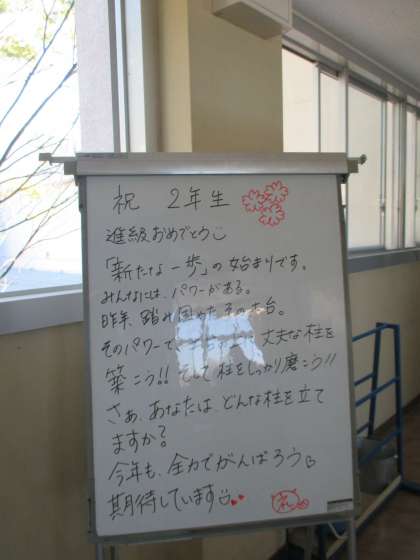 祝 2年生
進級おめでとう
「新たな一歩」の始まりです。
みんなには、パワーがある。
昨年、踏み固めたその土台。
そのパワーで 丈夫な柱を
築こう!!そして柱をしっかり磨こう!!
さぁ、あなたは、どんな柱を立て
ますか?
今年も、全力でがんばろう
期待しています